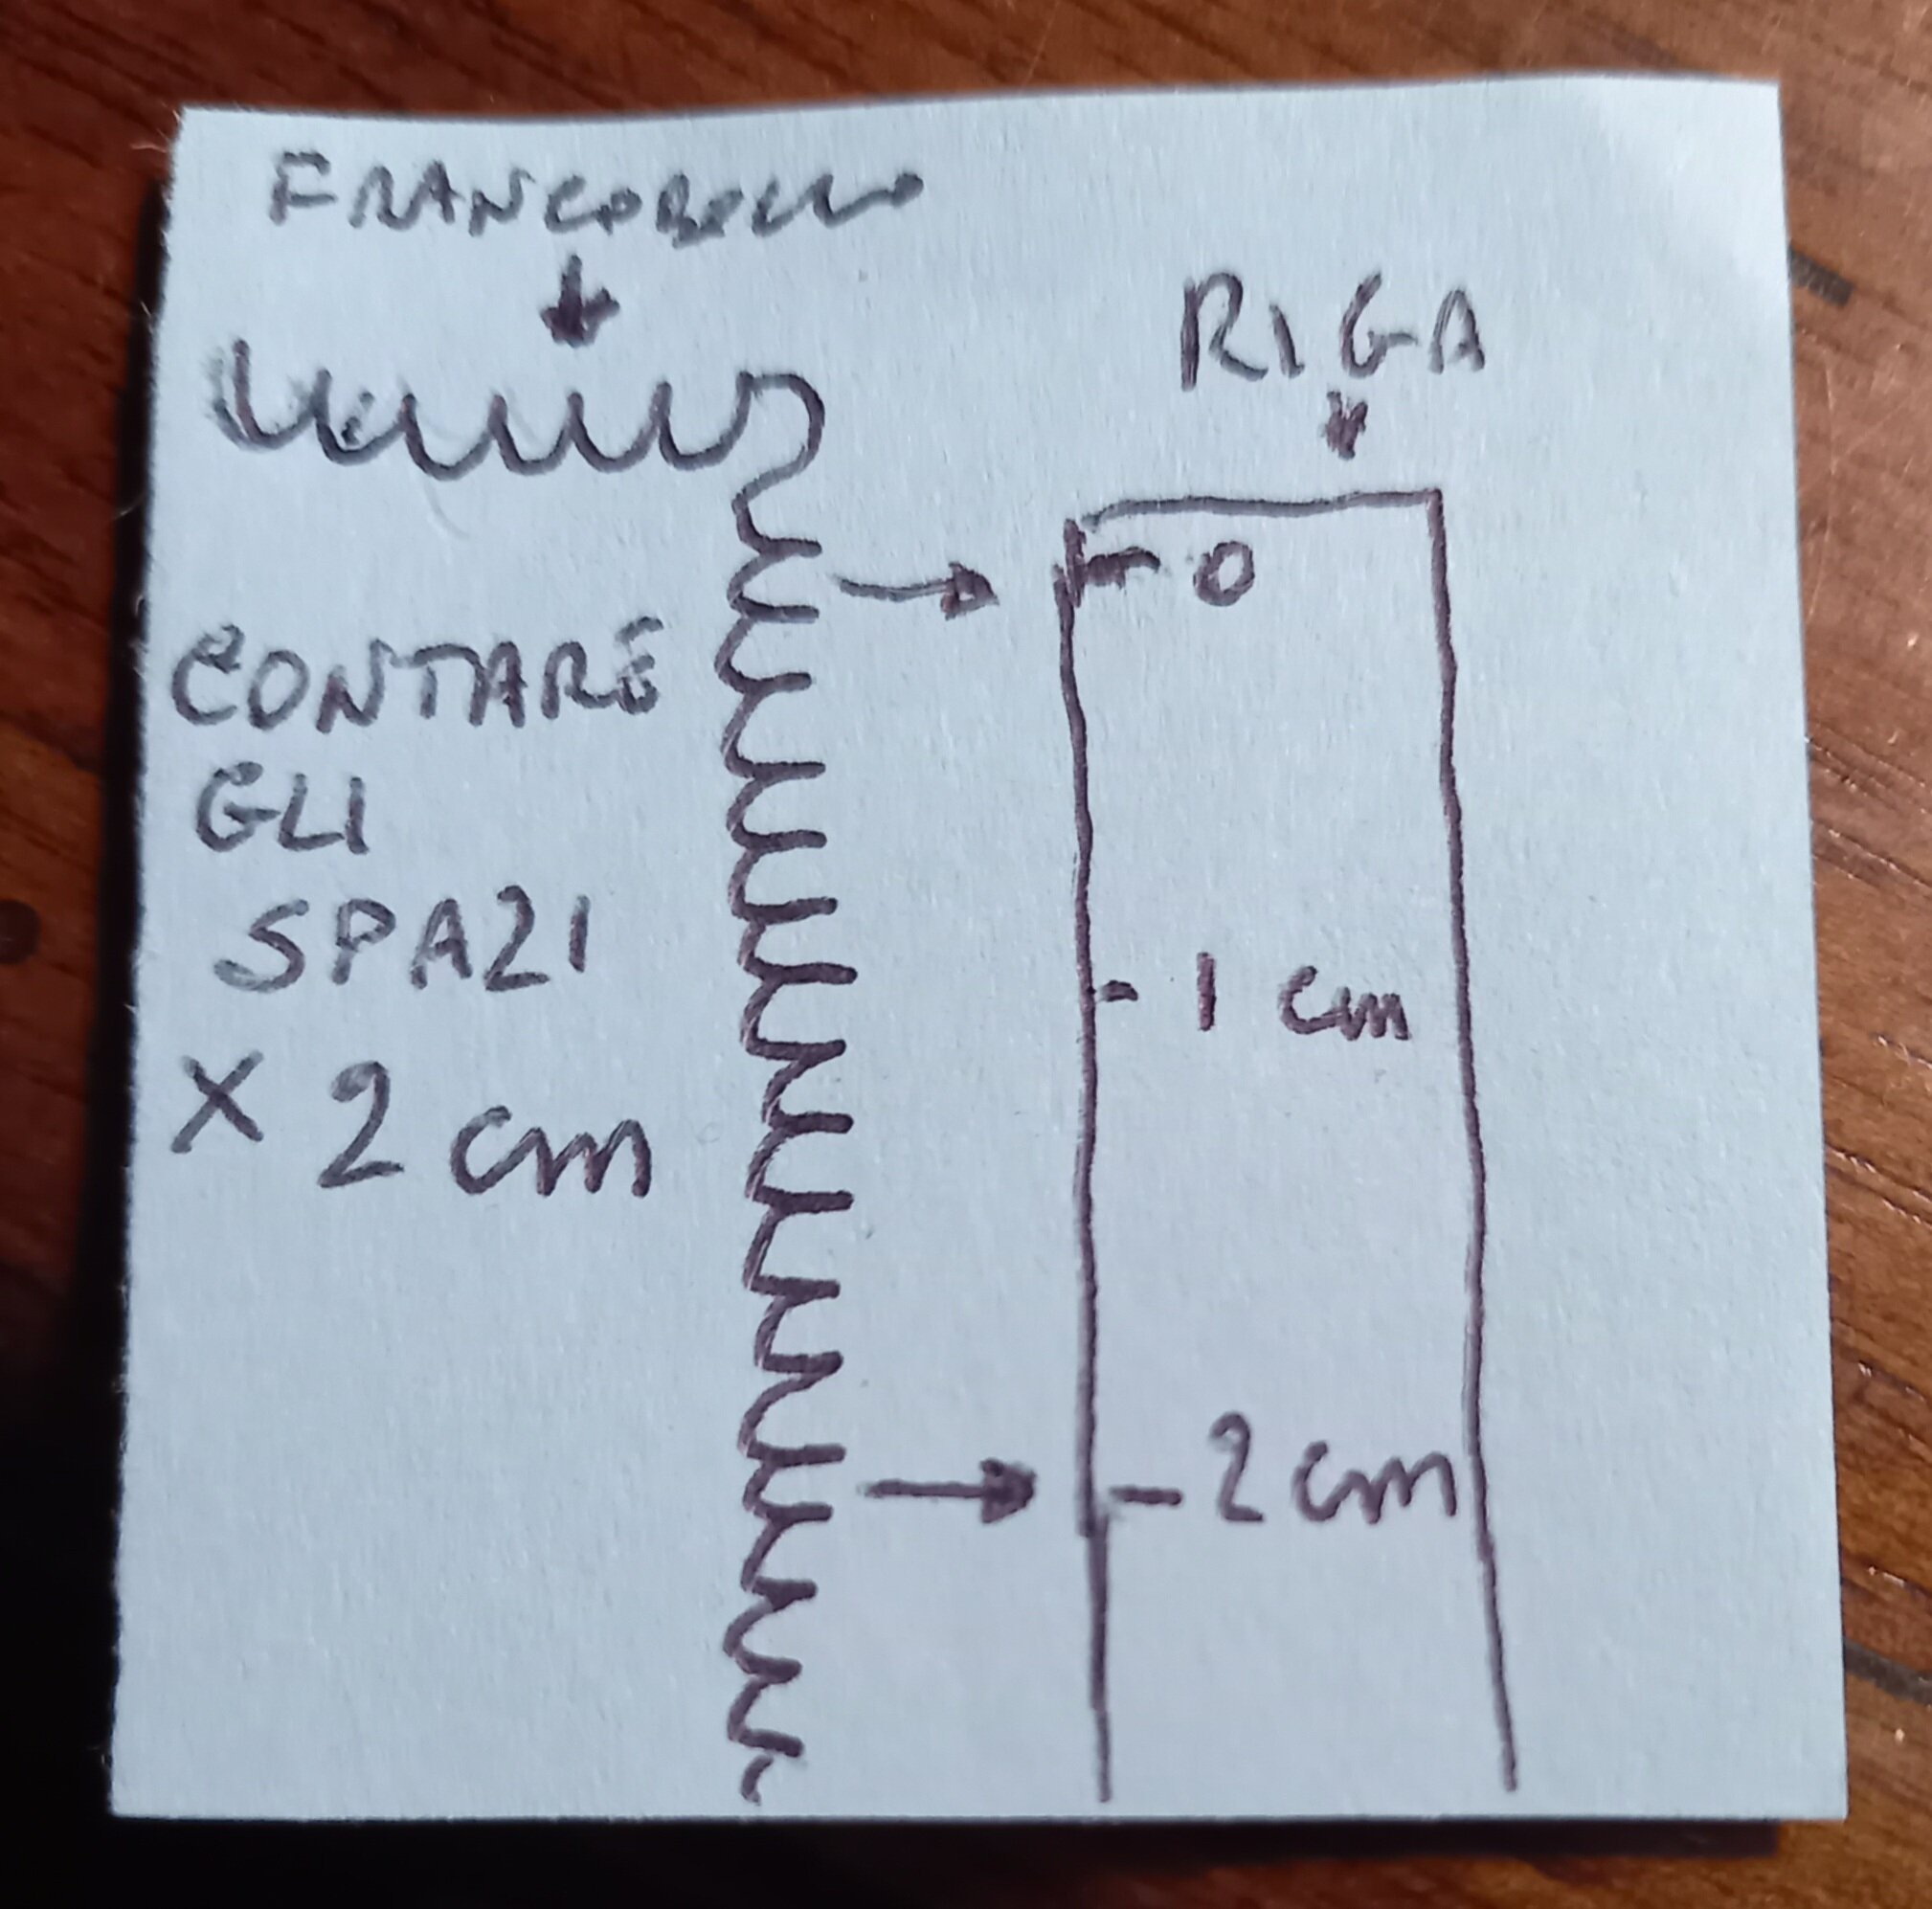 FRANCOBOLLO
RIGA
0
CONTARE
GLI
SPAZI
X 2 cm
- 1 cm
- 2 cm